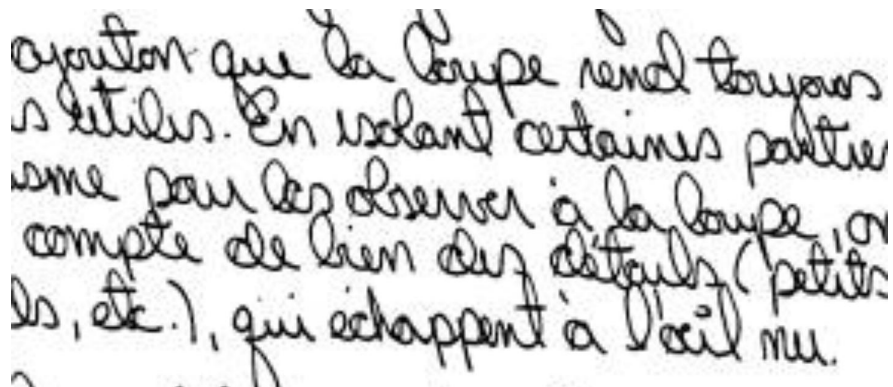 ajouton que la loupe rend toujours
s utiles. En isolant certaines parties
isme pour les observer à la loupe, on
compte de bien des détails (petits
ls, etc.), qui échappent à l'œil nu.